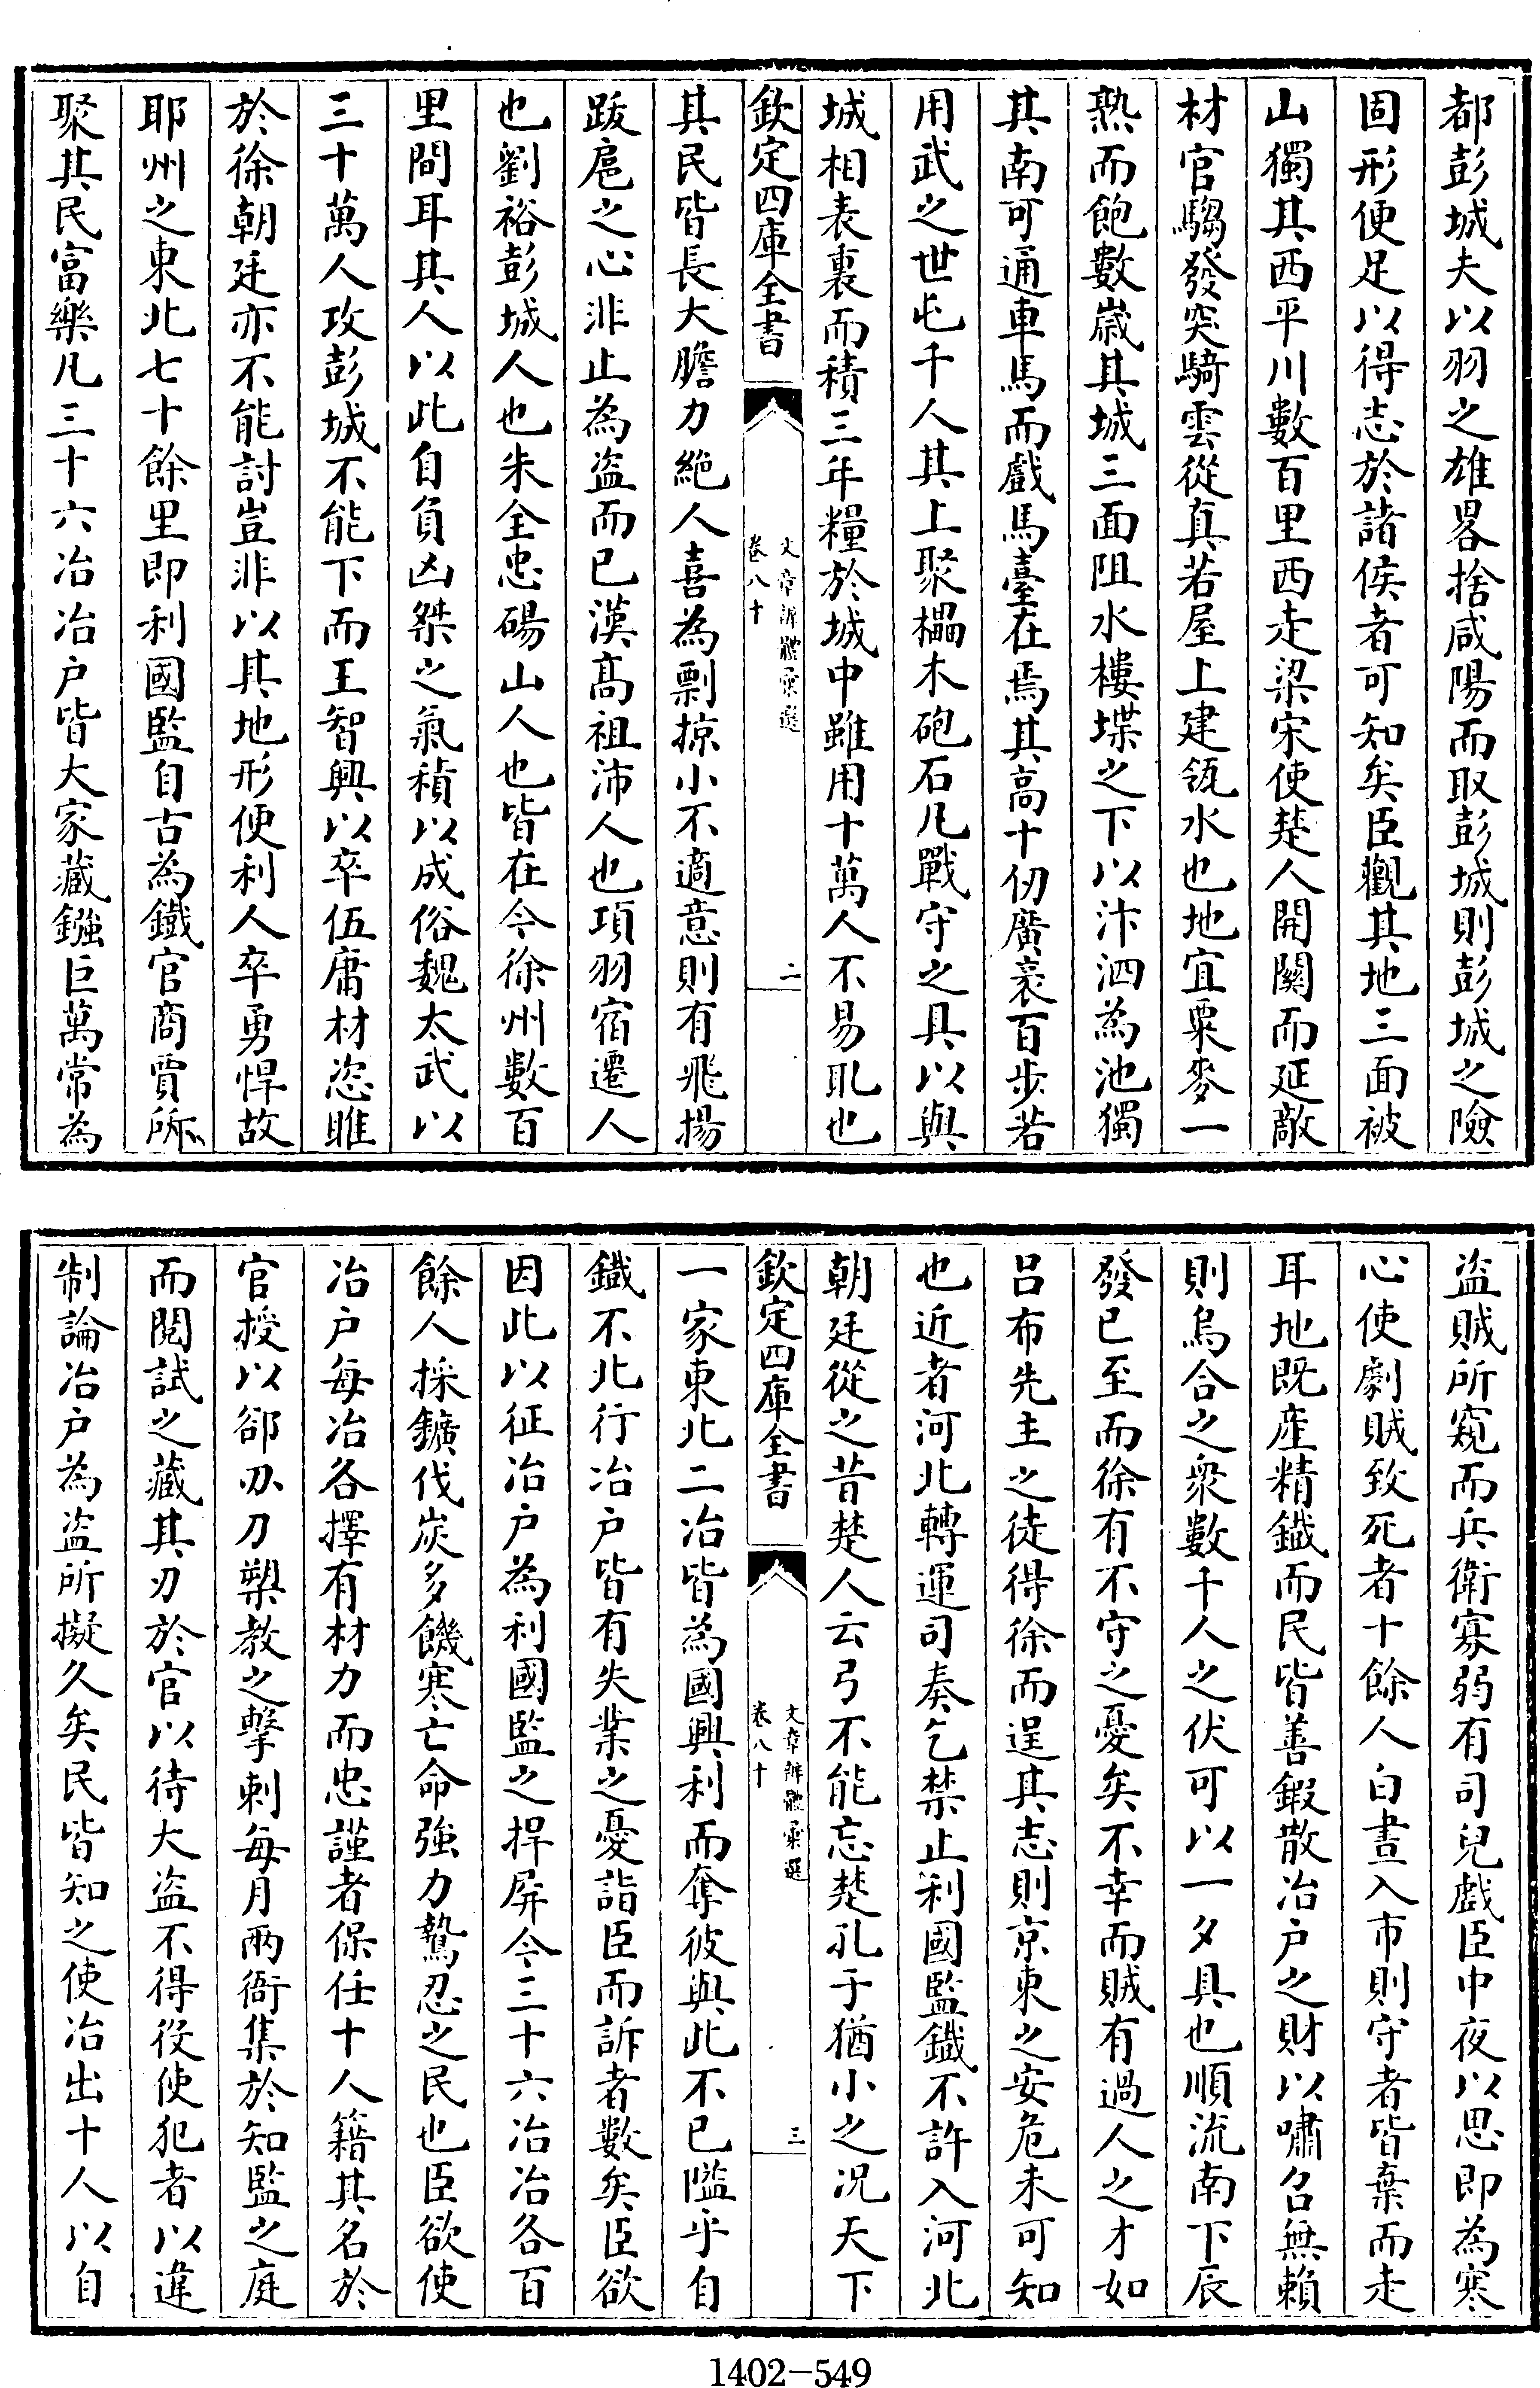 都彭城夫以羽之雄畧捨咸陽而取彭城則彭城之險
固形便足以得志於諸侯者可知矣臣觀其地三面被
山獨其西平川數百里西走梁宋使楚人開關而延敵
材官騶發突騎雲從真若屋上建瓴水也地宜粟麥一
熟而飽數嵗其城三面阻水樓堞之下以汴泗為池獨
其南可通車馬而戲馬臺在焉其高十仞廣袤百步若
用武之世屯千人其上聚櫑木砲石凡戰守之具以與
城相表裏而積三年糧於城中雖用十萬人不易取也
欽定四庫全書
文章辨體彚選
卷八十
二
其民皆長大膽力絶人喜為剽掠小不適意則有飛揚
跋扈之心非止為盗而已漢髙祖沛人也項羽宿遷人
也劉裕彭城人也朱全忠碭山人也皆在今徐州數百
里間耳其人以此自負凶桀之氣積以成俗魏太武以
三十萬人攻彭城不能下而王智興以卒伍庸材恣睢
於徐朝廷亦不能討豈非以其地形便利人卒勇悍故
耶州之東北七十餘里即利國監自古為鐵官商賈所
聚其民富樂凡三十六冶冶户皆大家藏鏹巨萬常為
盗賊所窺而兵衛寡弱有司兒戲臣中夜以思即為寒
心使劇賊致死者十餘人白晝入市則守者皆棄而走
耳地既産精鐵而民皆善鍜散冶户之財以嘯召無賴
則烏合之衆數千人之仗可以一夕具也順流南下辰
發已至而徐有不守之憂矣不幸而賊有過人之才如
吕布先主之徒得徐而逞其志則京東之安危未可知
也近者河北轉運司奏乞禁止利國監鐵不許入河北
朝廷從之昔楚人云弓不能忘楚孔子猶小之况天下
欽定四庫全書
文章辨體彚選
卷八十
三
一家東北二冶皆為國興利而奪彼與此不已隘乎自
鐵不北行冶户皆有失業之憂詣臣而訴者數矣臣欲
因此以征冶户為利國監之捍屏今三十六冶冶各百
餘人採鑛伐炭多饑寒亡命強力鷙忍之民也臣欲使
冶户每冶各擇有材力而忠謹者保任十人籍其名於
官授以郤刅刀槊教之擊刺每月兩衙集於知監之庭
而閲試之藏其刃於官以待大盗不得役使犯者以違
制論冶户為盗所擬久矣民皆知之使冶出十人以自
1402-549